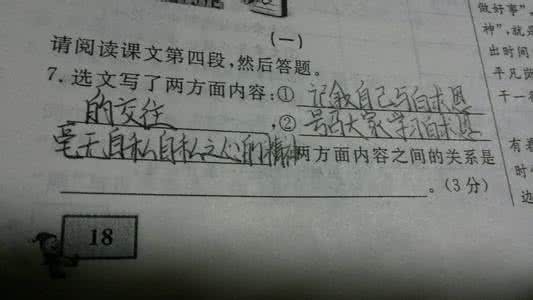 (一)
请阅读课文第四段,然后答题。
7.选文写了两方面内容:①记叙自己与白求恩
的交往,②号召大家学习白求恩
毫无自私自利之心的精神两方面内容之间的关系是
。(3分)
18
做好事”,
神”,就是
出时间
平凡岗
干一
有着
时
边